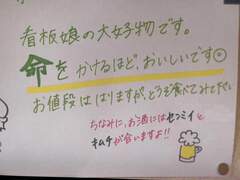 看板娘の大好物です。
命をかけるほど、おいしいです◎
お値段ははりますが、どうぞ食べてみて下さい
ちなみに、お酒にはセンマイと
キムチが合いますよ!!